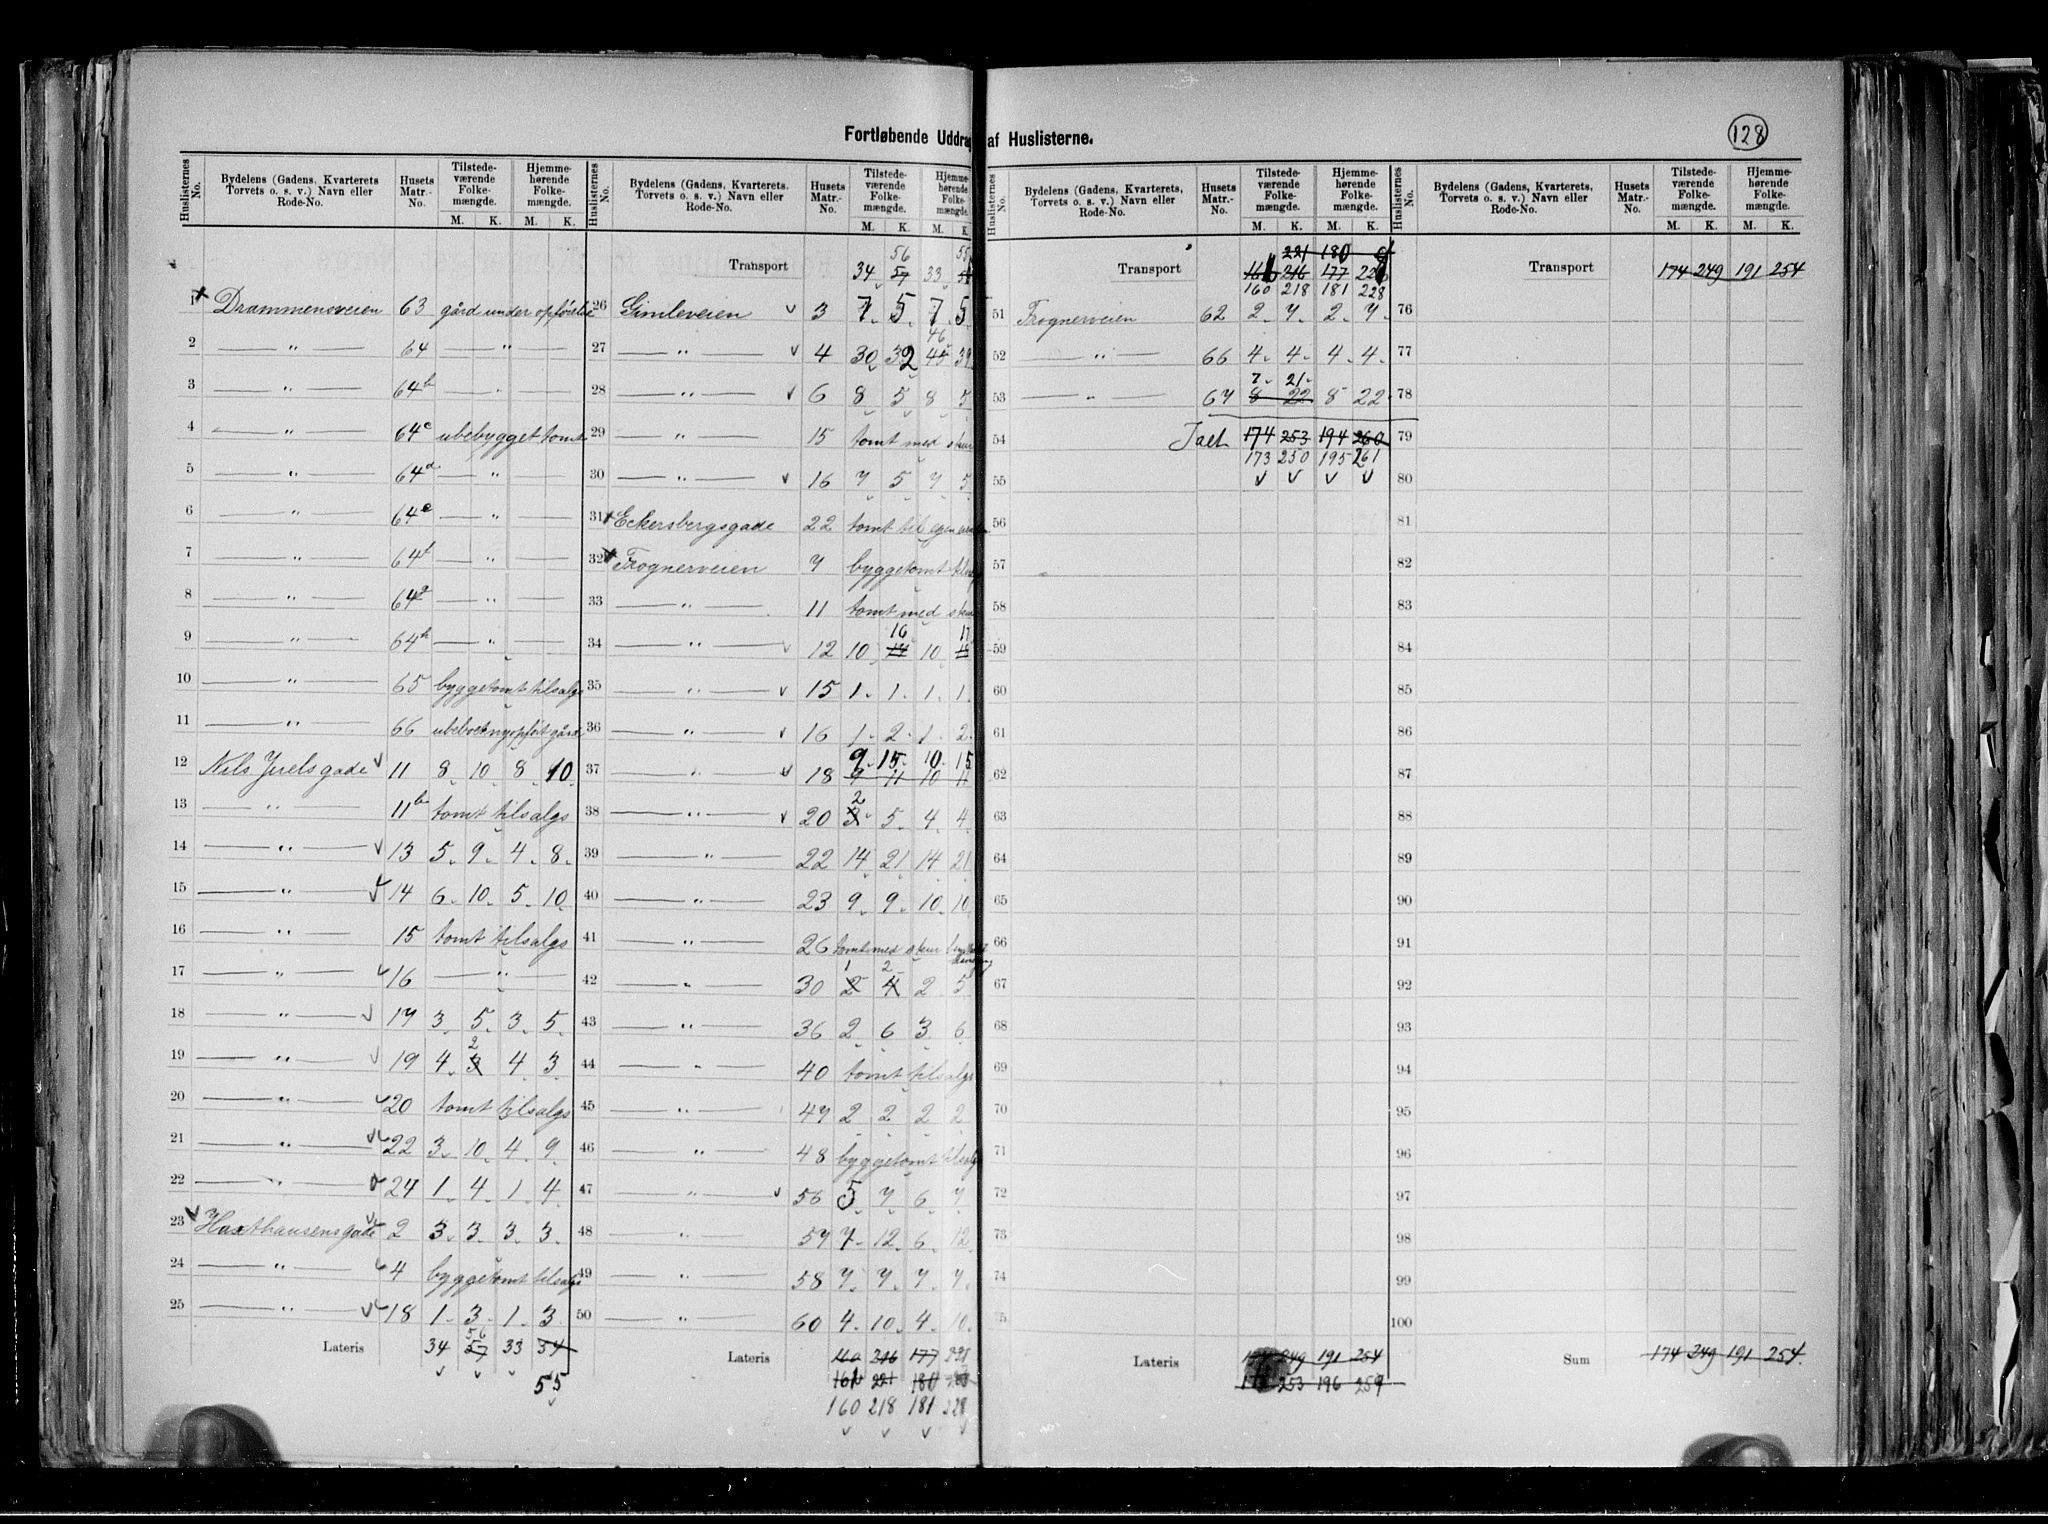 Fortløbende Uddrag af Huslisterne.
128
Huslisternes No. Bydelens (Gadens, Kvarterets, Torvets o. s. v.) Navn eller Rode-No. Husets Matr.-No. Tilstedeværende Folkemængde. M. K. Hjemmehørende Folkemængde. M. K.
1 Drammensveien 63 gård under opførelse
2 — „ — 64 — „ —
3 — „ — 64b — „ —
4 — „ — 64c ubebygget tomt
5 — „ — 64d — „ —
6 — „ — 64e — „ —
7 — „ — 64f — „ —
8 — „ — 64g — „ —
9 — „ — 64h — „ —
10 — „ — 65 byggetomt tilsalgs
11 — „ — 66 ubeboet nyopført gård
12 Nils Juels gade 11 8 10 8 10
13 — „ — 11b tomt tilsalgs
14 — „ — 13 5 9 4 8
15 — „ — 14 6 10 5 10
16 — „ — 15 tomt tilsalgs
17 — „ — 16 — „ —
18 — „ — 17 3 5 3 5
19 — „ — 19 4 3 2 4 3
20 — „ — 20 tomt tilsalgs
21 — „ — 22 3 10 4 9
22 — „ — 24 1 4 1 4
23 Haxthausensgade 2 3 3 3 3
24 — „ — 4 byggetomt tilsalgs
25 — „ — 18 1 3 1 3
Lateris 34 57 56 33 54
55
Huslisternes No. Bydelens (Gadens, Kvarterets, Torvets o. s. v.) Navn eller Rode-No. Husets Matr.-No. Tilstedeværende Folkemængde. M. K. Hjemmehørende Folkemængde. M. K.
56 55
Transport 34 57 33 54
26 Gimleveien 3 7 5 7 5
27 — „ — 4 30 32 46 39
28 — „ — 6 8 5 8 5
29 — „ — 15 tomt med skur
30 — „ — 16 7 5 7 5
31 Eckersbergsgade 22 tomt til egen
32 Frognerveien 7 byggetomt
33 — „ — 11 tomt med skur
34 — „ — 12 10 16 10 17
35 — „ — 15 1 1 1 1
36 — „ — 16 1 2 1 2
9 15 10 15
37 — „ — 18 9 11 10 11
38 — „ — 20 3 2 5 4 4
39 — „ — 22 14 21 14 21
40 — „ — 23 9 9 10 10
41 — „ — 26 tomt med skur
1 2
42 — „ — 30 2 4 2 5
43 — „ — 36 2 6 3 6
44 — „ — 40 tomt tilsalgs
45 — „ — 47 2 2 2 2
46 — „ — 48 byggetomt tilsalgs
47 — „ — 56 5 7 6 7
48 — „ — 57 7 12 6 12
49 — „ — 58 7 7 7 7
50 — „ — 60 4 10 4 10
Lateris 160 216 177
161 221 180
160 218 181 228
Huslisternes No. Bydelens (Gadens, Kvarterets, Torvets o. s. v.) Navn eller Rode-No. Husets Matr.-No. Tilstedeværende Folkemængde. M. K. Hjemmehørende Folkemængde. M. K.
221 180
Transport 161 216 177
160 218 181 228
51 Frognerveien 62 2 7 2 7
52 — „ — 66 4 4 4 4
7 21
53 — „ — 67 8 22 8 22
54 Ialt 174 253 194 260
173 250 195 261
55
56
57
58
59
60
61
62
63
64
65
66
67
68
69
70
71
72
73
74
75
Lateris 174 249 191 254
253 196 259
Huslisternes No. Bydelens (Gadens, Kvarterets, Torvets o. s. v.) Navn eller Rode-No. Husets Matr.-No. Tilstedeværende Folkemængde. M. K. Hjemmehørende Folkemængde. M. K.
Transport 174 249 191 254
76
77
78
79
80
81
82
83
84
85
86
87
88
89
90
91
92
93
94
95
96
97
98
99
100
Sum 174 249 191 254.